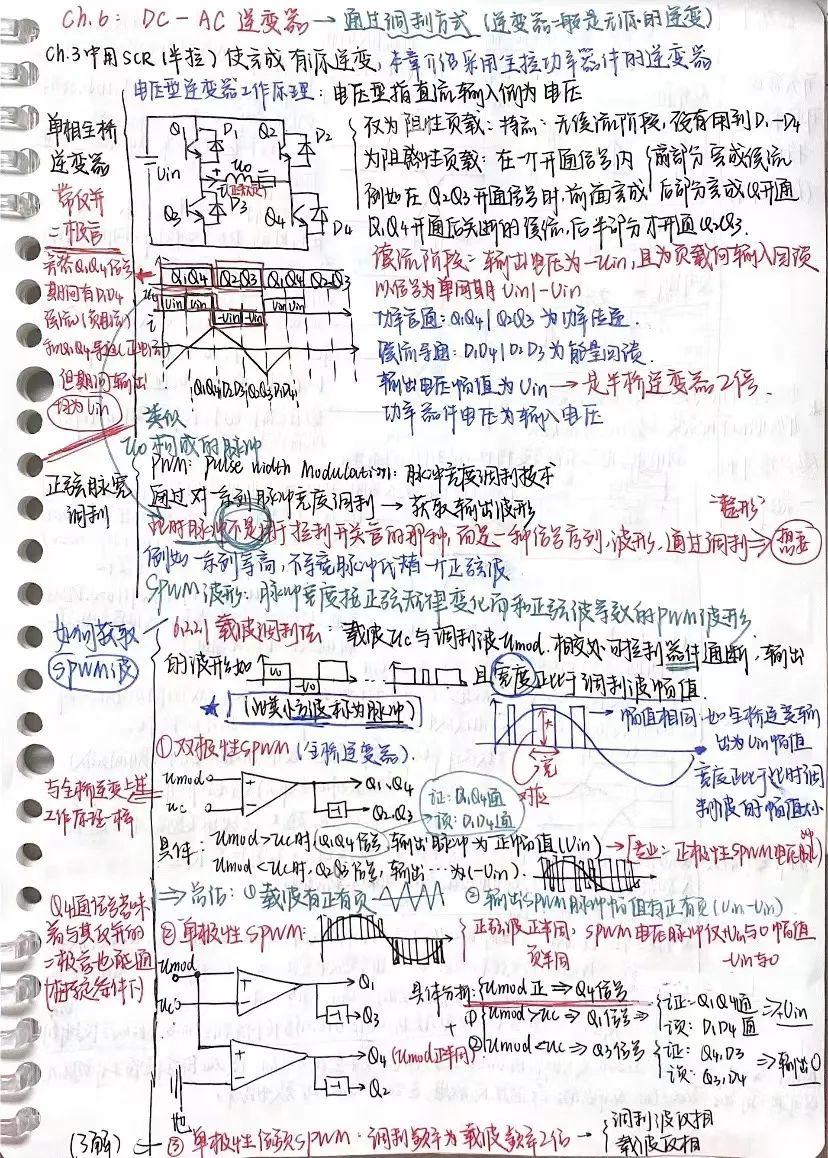 Ch.6: DC-AC 逆变器→通过调制方式 (逆变器一般是无源的逆变)
Ch.3中用SCR (半控) 使完成有源逆变, 本章介绍采用全控功率器件的逆变器
电压型逆变器工作原理: 电压型指直流输入侧为电压
单相全桥
逆变器
常仅并
二极管
Q1 D1 Q2 D2
Uin
uo
Q3 D3 Q4 D4
仅为阻性负载: 特点: 无续流阶段, 没有用到D1-D4
为阻感性负载: 在一个开通信号内 前部分完成续流
后部分完成Q开通
例如在Q2Q3开通信号时, 前面完成
Q1Q4开通后关断的续流, 后半部分才开通Q2Q3.
续流阶段: 输出电压为-Uin, 且为负载向输入回馈
以信号为单周期 Uin|-Uin
功率管通: Q1Q4|Q2Q3为功率传递.
续流导通: D1D4|D2D3为能量回馈.
输出电压幅值为Uin→是半桥逆变器2倍
功率器件电压为输入电压
Q1Q4 Q2Q3 Q1Q4 Q2Q3
uo Uin Uin -Uin -Uin Uin Uin
i
Q1Q4 D2D3 Q2Q3 D1D4
Q1Q4信号
期间有D1D4
但期间输出
均为Uin
类似
uo构成的脉冲
正弦脉宽
调制
PWM: Pulse width Modulation: 脉冲宽度调制技术
通过对一系列脉冲宽度调制→获取输出波形
此时脉冲不是用于控制开关管的那种, 而是一种信号序列.波形.通过调制⇒想要
"整形"
例如一系列等高, 不等宽脉冲代替一个正弦波
SPWM波形: 脉冲宽度按正弦规律变化而和正弦波等效的PWM波形.
如何获取
SPWM波
6.2.2) 载波调制法 载波Uc与调制波Umod.相交处可控制器件通断, 输出
的波形如 uo -uo 且宽度正比于调制波幅值.
★ (此类小方波称为脉冲)
幅值相同 如全桥逆变输
出为Uin幅值
宽度正比于此时调
制波的幅值大小
宽
对应
① 双极性SPWM (全桥逆变器).
与全桥逆变上述
工作原理一样
Umod
uc
Q1、Q4
-1 Q2.Q3
证: D1Q4通
误: D1D4通
具体: Umod>Uc时(Q1Q4信号)输出脉冲为正幅值(Uin)→[专业: 正极性SPWM电压脉冲
Umod<Uc时, Q2Q3信号, 输出…为(-Uin).
⇒总结: ①载波有正有负 ②输出SPWM脉冲幅值有正有负(Uin -Uin)
Q4通信号意味
着与其反并的
二极管也能通
② 单极性SPWM:
正弦波正半周, SPWM电压脉冲仅+Uin与0幅值
负半周 -Uin与0
Umod
uc
Q1
-1 Q3
Q4 (Umod正半周)
-1 Q2
具体分析: Umod正⇒Q4信号
+
① Umod>Uc⇒Q1信号⇒ 证: Q1Q4通 误: D1D4通 ⇒Uin
② Umod<Uc⇒Q3信号 证: Q4,D3 误: Q3,D4 ⇒输出0
(了解) ③ 单极性倍频SPWM: 调制频率为载波频率2倍→ 调制波反相
载波反相